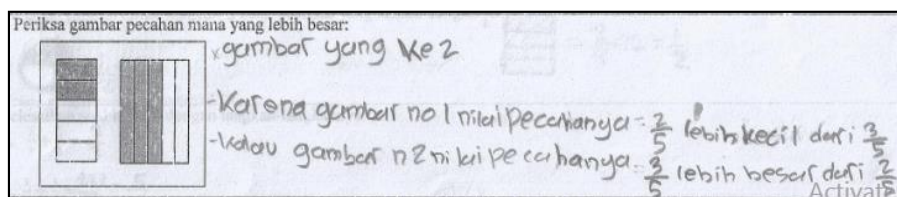 Periksa gambar pecahan mana yang lebih besar:
gambar yang ke 2
-Karena gambar no 1 nilai pecahanya = 2/5 lebih kecil dari 3/5
-kalau gambar n 2 nilai pecahanya = 3/5 lebih besar dari 2/5
Activat